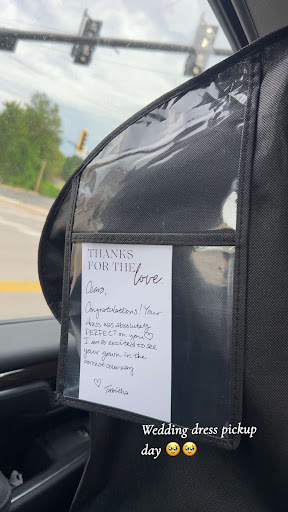 THANKS
FOR THE
love.
Congratulations! Your
dress was absolutely
PERFECT on you ♡
I am so excited to see
your gown in the
♡ Tabitha
Wedding dress pickup
day 🥹🥹